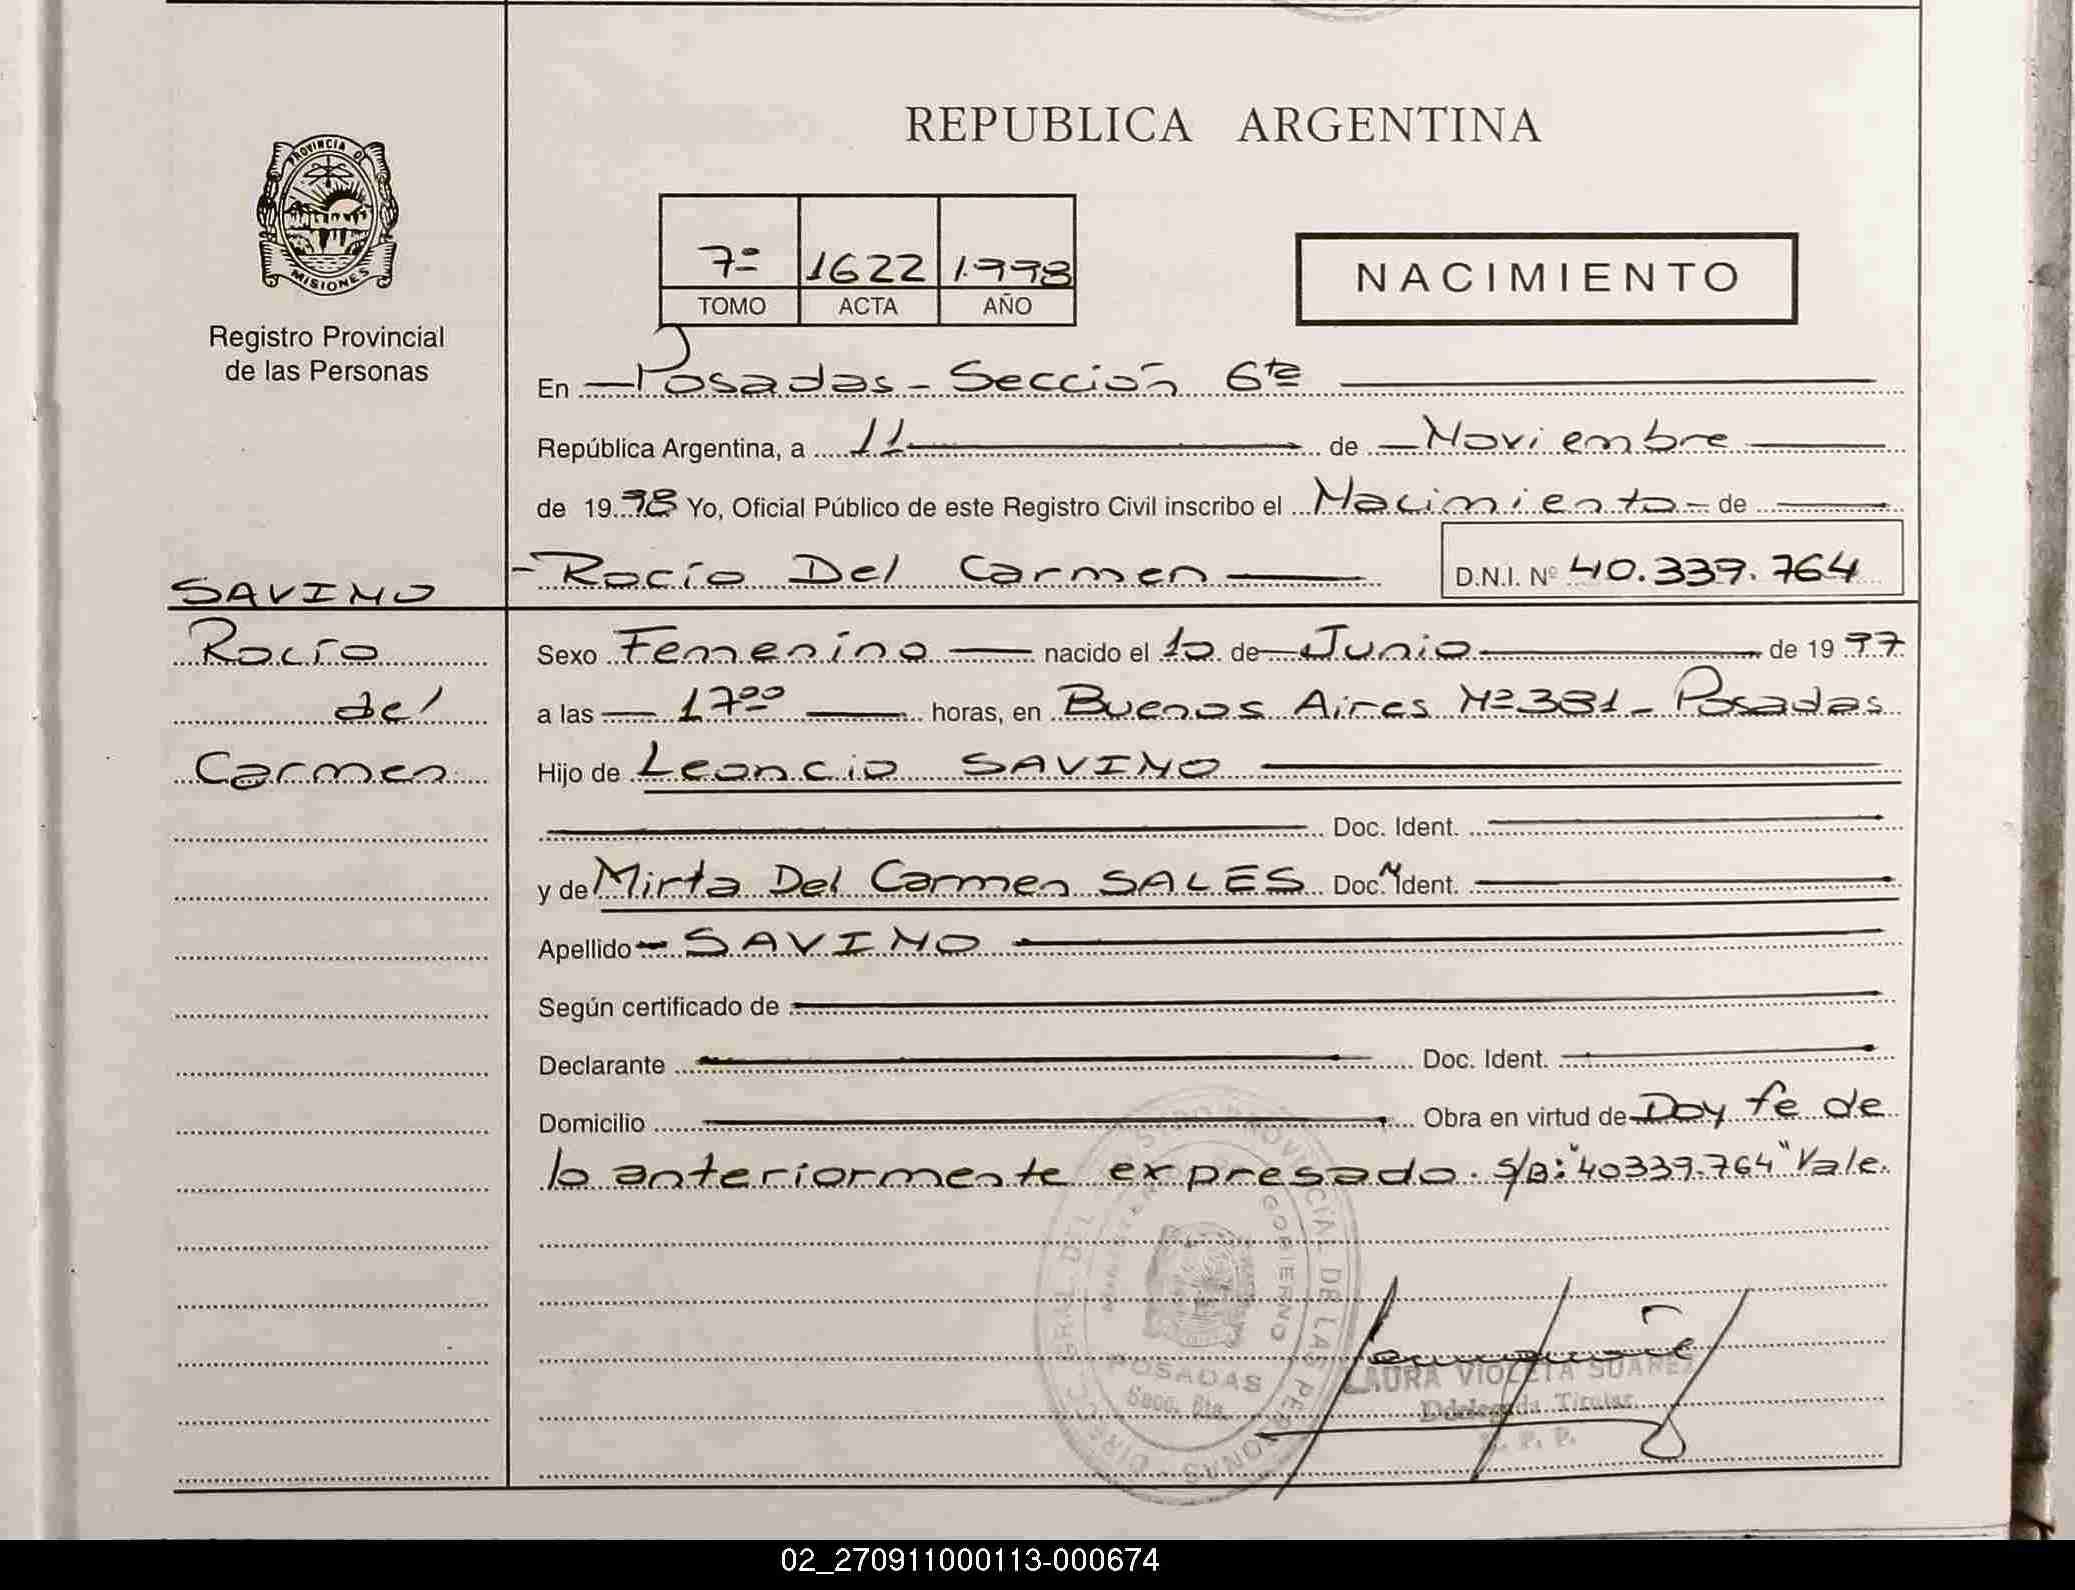 REPUBLICA ARGENTINA
PROVINCIA DE
MISIONES
Registro Provincial
de las Personas
7º 1622 1998
TOMO ACTA AÑO
NACIMIENTO
En Posadas - Sección 6ta
República Argentina, a 11 de Noviembre
de 1998 Yo, Oficial Público de este Registro Civil inscribo el Nacimiento - de
- Rocío Del Carmen
D.N.I. Nº 40.339.764
SAVINO
Rocío
del
Carmen
Sexo Femenino nacido el 10 de Junio de 1997
a las 17⁰⁰ horas, en Buenos Aires Nº 381 - Posadas
Hijo de Leoncio SAVINO
Doc. Ident.
y de Mirta Del Carmen SALES Doc. Ident.
Apellido - SAVINO
Según certificado de
Declarante Doc. Ident.
Domicilio Obra en virtud de Doy fe de
lo anteriormente expresado. S/B: "40339.764" Vale.
DIREC. GRAL. DEL REGISTRO PROVINCIAL DE LAS PERSONAS
GOBIERNO
POSADAS
Secc. 6ta.
LAURA VIOLETA SUAREZ
Titular
R. P. P.
02_270911000113-000674